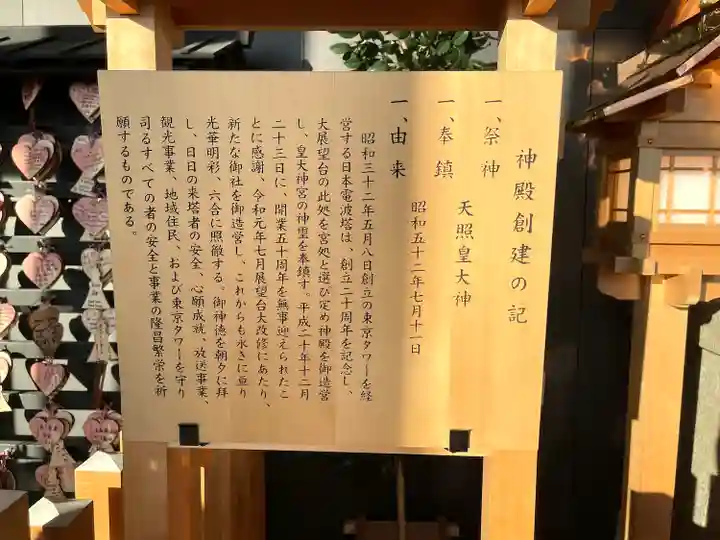 神殿創建の記
一、祭神
天照皇大神
一、奉鎮
昭和五十二年七月十一日
一、由来
昭和三十二年五月八日創立の東京タワーを経
営する日本電波塔は、創立二十周年を記念し、
大展望台の此処を宮処と選び定め神殿を御造営
し、皇大神宮の神霊を奉鎮す。平成二十年十二月
二十三日に、開業五十周年を無事迎えられたこ
とに感謝、令和元年七月展望台大改修にあたり、
新たな御社を御造営し、これからも永きに亘り
光華明彩、六合に照徹する。御神徳を朝夕に拝
し、日日の来塔者の安全、心願成就、放送事業、
観光事業、地域住民、および東京タワーを守り
司るすべての者の安全と事業の隆昌繁栄を祈
願するものである。